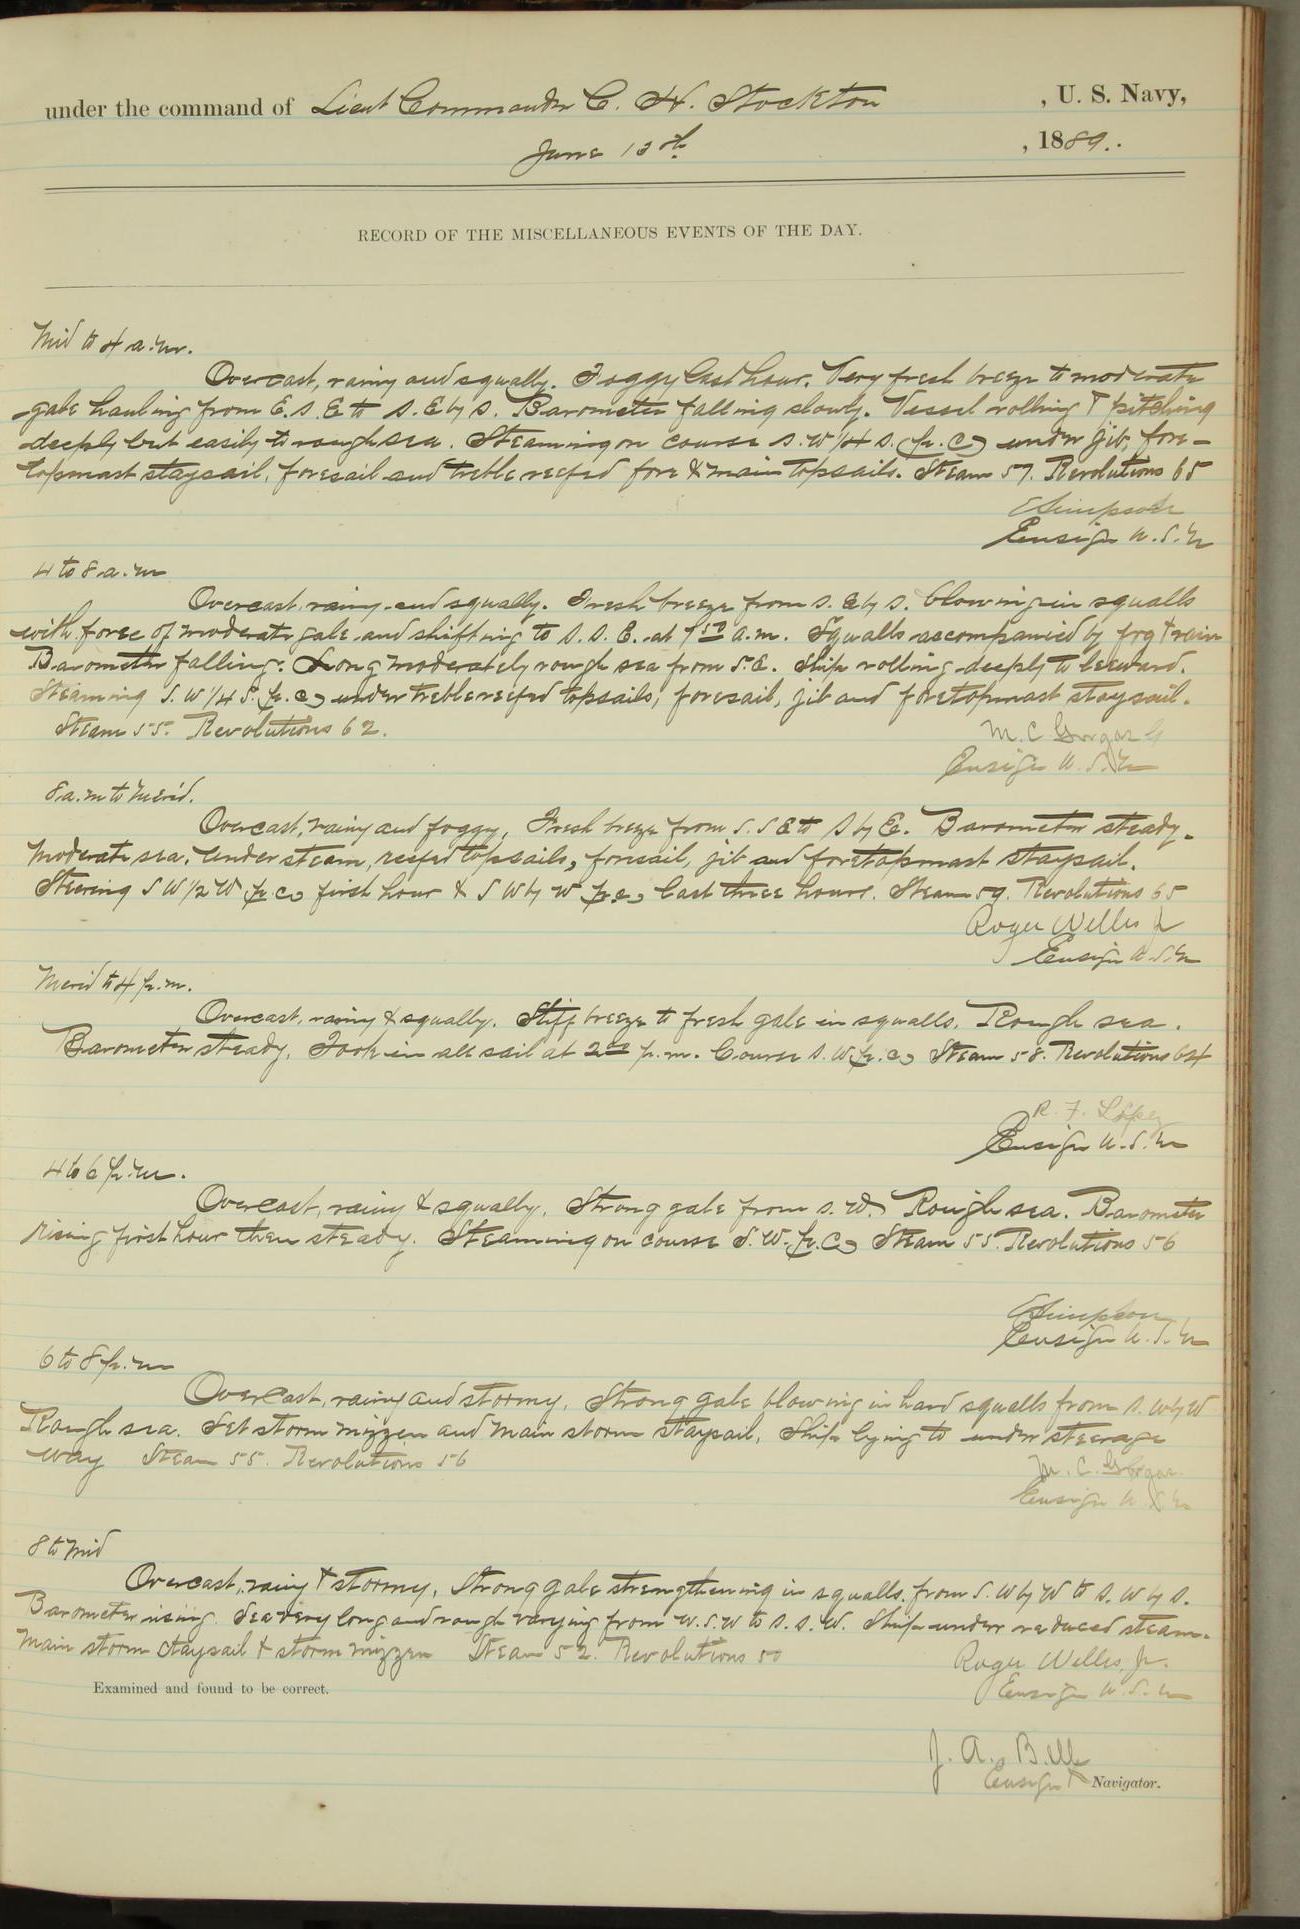 under the command of Lieut Commander C. H. Stockton , U. S. Navy,
June 13th , 1889.
RECORD OF THE MISCELLANEOUS EVENTS OF THE DAY.
Mid to 4 a.m.
Overcast, rainy and squally. Foggy last hour. Very fresh breeze to moderate
gale hauling from E.S.E to S.E by S. Barometer falling slowly. Vessel rolling & pitching
deeply but easily to rough sea. Steaming on course S.W 1/4 S. (p.c) under jib, fore-
topmast staysail, foresail and treble reefed fore & main topsails. Steam 57. Revolutions 65
E Simpson
Ensign U.S.N
4 to 8 a.m
Overcast, rainy and squally. Fresh breeze from S.E by S. blowing in squalls
with force of moderate gale and shifting to S.S.E. at a.m. Squalls accompanied by fog & rain
Barometer falling. Long moderately rough sea from S.E. Ship rolling deeply to leeward.
Steaming S.W 1/4 S. (p.c) under treble reefed topsails, foresail, jib and foretopmast staysail.
Steam 55. Revolutions 62.
M. C. Gorgas
Ensign U.S.N
8 a.m to Merid.
Overcast, rainy and foggy, Fresh breeze from S.S E to S by E. Barometer steady.
Moderate sea. Under steam, reefed topsails, foresail, jib and foretopmast staysail.
Steering S W 1/2 W (p.c) first hour & S W by W (p.c) last three hours. Steam 59. Revolutions 65
Roger Welles Jr
Ensign U.S.N
Merid to 4 p.m.
Overcast, rainy & squally. Stiff breeze to fresh gale in squalls. Rough sea.
Barometer steady. Took in all sail at p.m. Course S.W (p.c) Steam 58. Revolutions 64
R. F. Lopez
Ensign U.S.N
4 to 6 p.m.
Overcast, rainy & squally. Strong gale from S.W. Rough sea. Barometer
rising first hour then steady. Steaming on course S.W. (p.c) Steam 55. Revolutions 56
E Simpson
Ensign U.S.N
6 to 8 p.m
Overcast, rainy and stormy. Strong gale blowing in hard squalls from S.W by W
Rough sea. Set storm mizzen and main storm staysail. Ship lying to under steerage
way Steam 55. Revolutions 56
M. C. Gorgas
Ensign U.S.N
8 to Mid
Overcast, rainy & stormy. Strong gale strengthening in squalls. from S.W by W to S.W by S.
Barometer rising. Sea very long and rough varying from W.S.W to S.S.W. Ship under reduced steam.
Main storm staysail & storm mizzen Steam 52. Revolutions 50
Roger Welles, Jr.
Ensign U.S.N
Examined and found to be correct.
J. A. Bell
Ensign & Navigator.